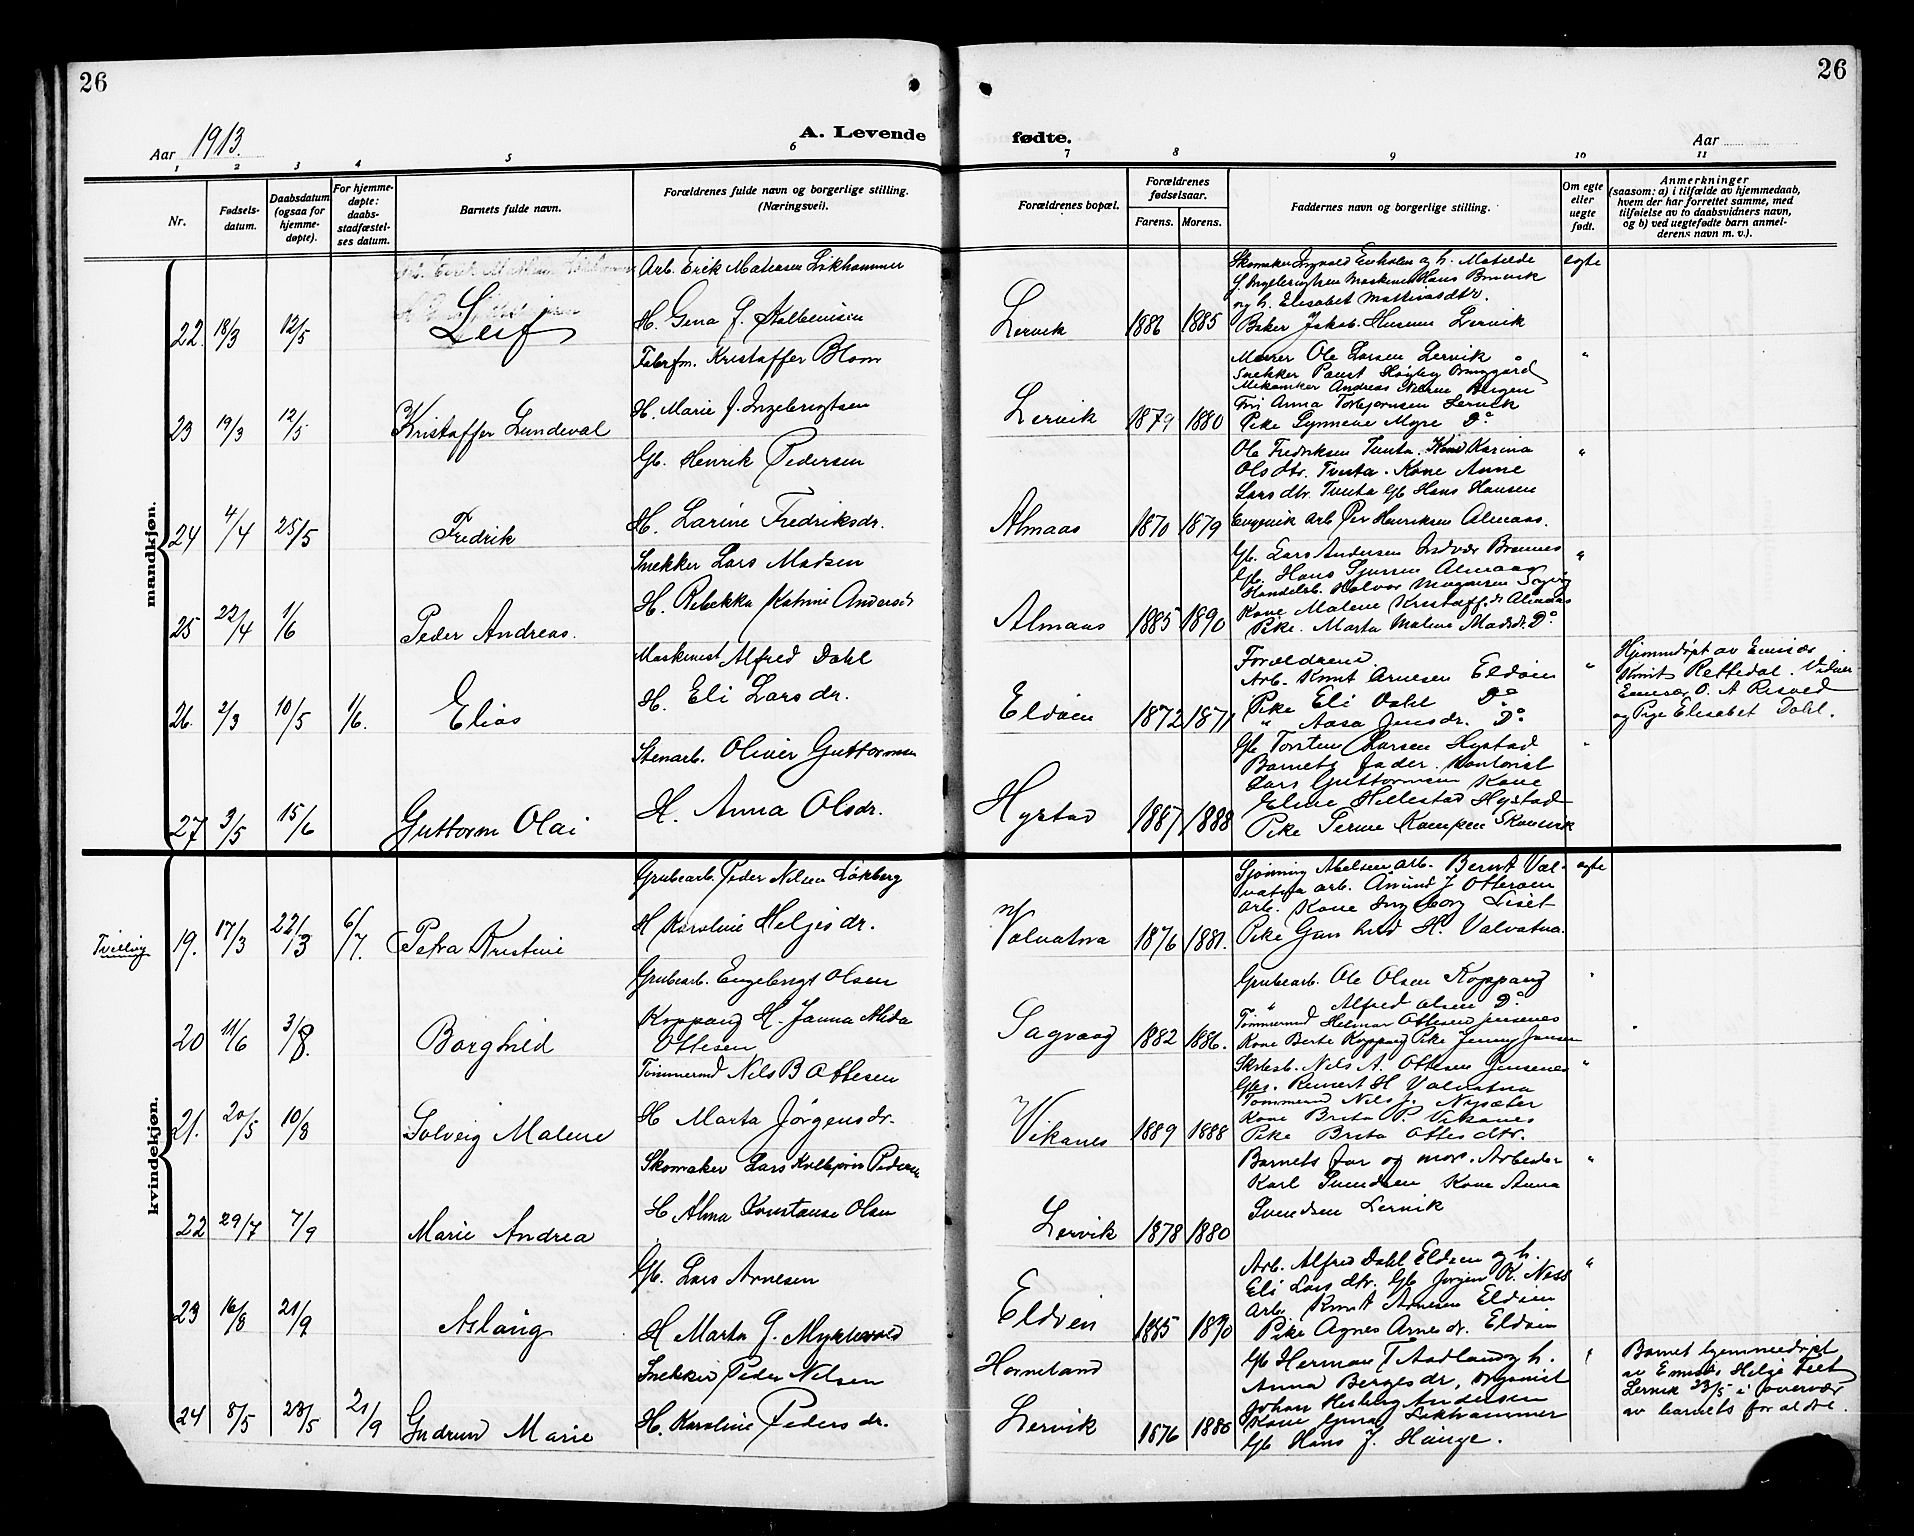 26
26
Aar 1913.
A. Levende
fødte.
Aar
1 2 3 4 5 6 7 8 9 10 11
Nr.
Fødsels-
datum.
Daabsdatum
(ogsaa for
hjemme-
døpte).
For hjemme-
døpte:
daabs-
stadfæstel-
ses datum.
Barnets fulde navn.
Forældrenes fulde navn og borgerlige stilling.
(Næringsvei).
Forældrenes bopæl.
Forældrenes
fødselsaar.
Farens. Morens.
Faddernes navn og borgerlige stilling.
Om egte
eller
uegte
født.
Anmerkninger
(saasom: a) i tilfælde av hjemmedaab,
hvem der har forrettet samme, med
tilføielse av to daabsvidners navn,
og b) ved uegtefødte barn anmel-
derens navn m. v.).
mandkjøn.
22. 18/3 12/5
Leif
Arb. Erik Mateasen Likhammer
H. Gena J. Kolbeinsen
Lervik 1886 1885
Skomaker Ingvald Enholm og h. Matilde
J. Ingebrigtsen Maskinist Hans Bruvik
og h. Elisabet Mathiasdtr.
Baker Jakob Husum Lervik
egte
23 19/3 12/5
Kristaffer Lundeval
Faberfm. Kristaffer Blom
H. Marie J. Ingebrigtsen
Lervik 1879 1880
Murer Ole Larsen Lervik
Snekker Paust Høyby Bruggard
Mekaniker Andreas Nilsen Bergen
Frii Anna Torbjørnsen Lervik
Pike Synneve Mopre Do
"
24 4/4 25/5
Fredrik
Gb. Henrik Pedersen
H. Larine Fredriksdr.
Almaas 1870 1879
Ole Fredriksen Tveita. Kone Karina
Olsdtr. Tveita. Kone Anne
Larsdtr. Tveita Gb Hans Hansen
Engevik Arb Per Henriksen Almaas.
"
25 22/4 1/6
Peder Andreas.
Snekker Lars Madsen
H. Rebekka Katrine Andersdt
Almaas 1885 1890
Gb. Lars Andersen Indvær Bremnes
Gb. Hans Sjursen Almaas
Handelsb. Halvor Mogensen Sagvåg
Kone Malene Kristoff.dr Almaas
Pike. Marta Malene Madsdr. Do
"
26. 2/3 10/5 1/6.
Elias
Maskinist Alfred Dahl
H. Eli Larsdr.
Eldøen 1872 1871
Forældrene.
Arb. Knut Arnesen Eldøen
Pike Eli Dahl Do
" Aasa Jensdr. Do
"
Hjemmdøpt av Emisær
Knut Rettedal. Vidner
Emisær O. A Risvold
og Pige Elisabet Dahl.
27 3/5 15/6
Guttorm Olai
Stenarb. Oliver Guttormsen
H. Anna Olsdr.
Hystad 1887 1888
Gb Torsten Larsen Hystad
Barnets fader. Kontorist
Lars Guttormsen Kone
Eline Hellestad Hystad
Pike Serine Kaempen Skonevik
"
kvindekjøn.
Tvilling
19. 17/3 22/13 6/7.
Petra Kristine
Grubearb. Peder Nilsen Løkberg
H Karoline Helgesdr.
n/ Valvatna 1876 1881.
Sjømning Abelsen arb. Bernt Val-
vatna arb. Åmund J Otterøen
arb. Kone Ingeborg Liset
Pike Gunhild H. Valvatna.
egte
20 11/6 3/8.
Borghild
Grubearb. Engebregt Olsen
Koppang H. Janna Alida
Ottesen
Sagvaag 1882 1886.
Grubearb. Ole Olsen Koppang
" Alfred Olsen Do
Tømmermd Helmar Ottesen Jensenes
Kone Berte Koppang Pike Jenny Jansen
"
21. 20/5 10/8
Solveig Malene
Tømmermd Nils B Ottesen
H Marta Jörgensdr.
Vikanes 1889 1888
Skibsb. Nils A. Ottesen Jensenes
Gbs. Reinert H Valvatna
Tømmermd Nils J. Nysæter
Kone Brita P. Vikanes
Pike Brita Ottesdtr.
"
22 29/7 7/9
Marie Andrea
Skomaker Lars Kolbjørn Pedersen
H Alma Konstanse Olsen
Lervik 1878 1880
Barnets far og mor. Arbeider
Karl Svendsen Kone Anna
Svendsen Lervik
"
23 16/8 21/9
Aslaug
Gb. Lars Arnesen
H Marta J. Myklevold
Eldøen 1885 1890
Arb. Alfred Dahl Eldøen og h.
Eli Larsdtr. Gb Jørgen K. Ness
Arb. Knut Arnesen Eldøen
Pike Agnes Arnesdr. Eldøen
"
24 8/5 23/5 21/9
Gudrun Marie
Snekker Peder Nilsen
H. Karoline Pedersdr.
Horneland
Lervik 1876 1880
Gb Herman T Aadland og h.
Anna Bergesdr, Organist
Johan Herberg Andersen
Kone Gina Likhammer
Gb Hans J. Hauge.
"
Barnet hjemmedøpt
av Emisær Helge Tveit
Lervik 23/5 i overvær
av barnets forældre.